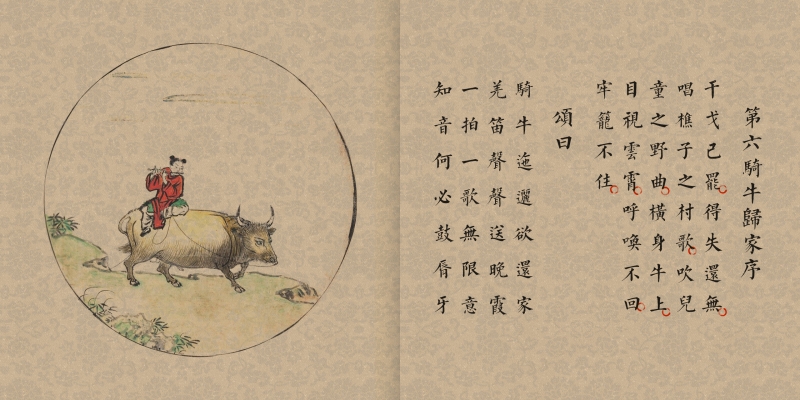 第六騎牛歸家序
干戈已罷得失還無
唱樵子之村歌吹兒
童之野曲橫身牛上
目視雲霄呼喚不回
牢籠不住
頌曰
騎牛迤邐欲還家
羌笛聲聲送晚霞
一拍一歌無限意
知音何必鼓唇牙